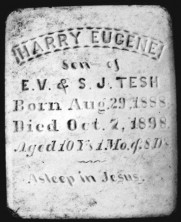 HARRY EUGENE
Son of
E.V. & S.J. TESH
Born Aug. 29, 1888
Died Oct. 7, 1898
Aged 10 Y's 1 Mo. & 8 D's
Asleep in Jesus.